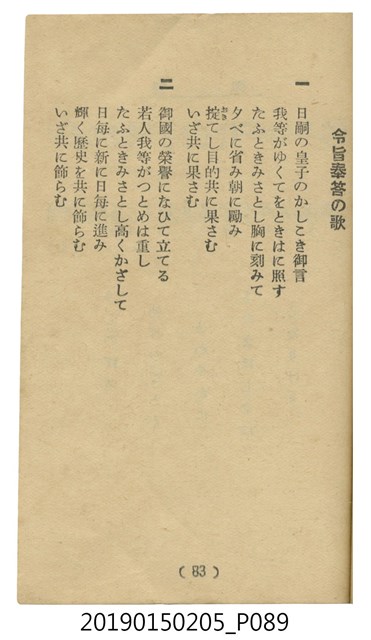 令旨奉答の歌
一
日嗣の皇子のかしこき御言
我等がゆくてをときはに照す
たふときみさとし胸に刻みて
夕べに省み朝に勵み
掟てし目的共に果さむ
おき
いざ共に果さむ
二
御國の榮譽になひて立てる
若人我等がつとめは重し
たふときみさとし高くかざして
日每に新に日每に進み
輝く歷史を共に飾らむ
いざ共に飾らむ
(83)
20190150205_P089